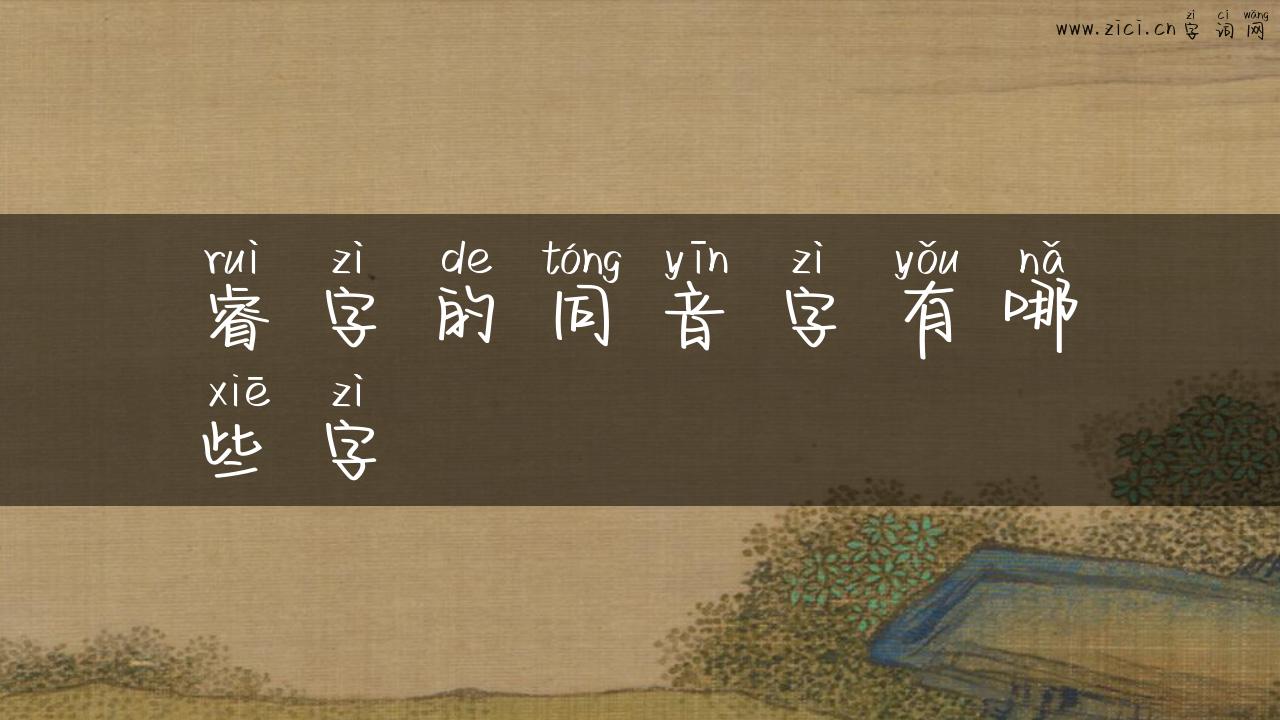 www.zici.cn zì cí wǎng
字词网
ruì zì de tóng yīn zì yǒu nǎ
睿字的同音字有哪
xiē zì
些字